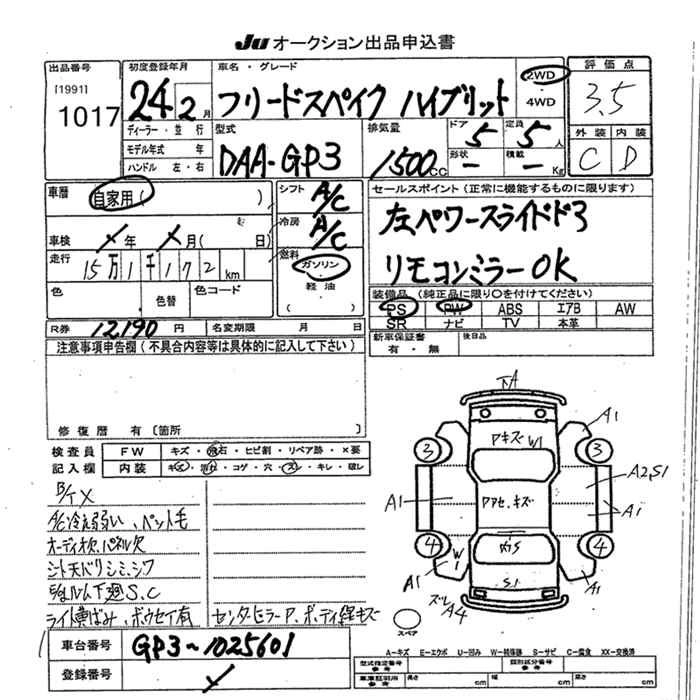 JU オークション出品申込書
出品番号
[1991]
1017
初度登録年月
24 2 月
車名・グレード
フリードスペイク ハイブリット
2WD
4WD
評価点
3.5
ディーラー・並行
モデル年式 年
ハンドル 左・右
型式
DAA-GP3
排気量
1500cc
ドア 5
定員 5 人
形状 ー
積載 ー Kg
外装 内装
C D
車歴
自家用( )
シフト
A/C
冷房
A/C
車検
X 年 X 月( 日)
走行
15万1千172km
燃料
ガソリン
軽油
色
色替
色コード
セールスポイント(正常に機能するものに限ります)
左パワースライドドア
リモコンミラーOK
装備品(純正品に限り○を付けてください)
PS PW ABS エアB AW
SR ナビ TV 本革
R券 12,190 円
名変期限 月 日
新車保証書
有・無
後日品
注意事項申告欄(不具合内容等は具体的に記入して下さい)
修復歴 有〔箇所 〕
検査員
記入欄
FW キズ・飛石・ヒビ割・リペア跡・×要
内装 キズ・汚れ・コゲ・穴・スレ・キレ・破レ
A/C冷え弱い、ペット毛
オーディオ欠、パネル欠
シート天バリシミ、シワ
下廻S.C
ライト黄ばみ、ボウセイ有
下A
アキズ W1
A1
3
3
A1
アアセ、キズ
A2,S1
A1
4
4
W1
S1
A1
A1
A4
スペア
A-キズ E-エクボ U-凹み W-補修跡 S-サビ C-腐食 XX-交換済
車台番号
GP3-1025601
登録番号
X
型式指定番号
参考
類別区分番号
参考
車庫証明用
参考
長さ cm
幅 cm
高さ cm